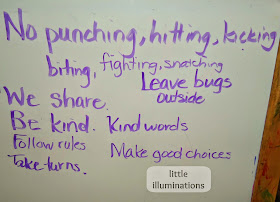 No punching, hitting, kicking
biting, fighting, snatching
Leave bugs
outside
We share.
Be kind. Kind words
Follow rules
Make good choices
Take turns.
little
illuminations